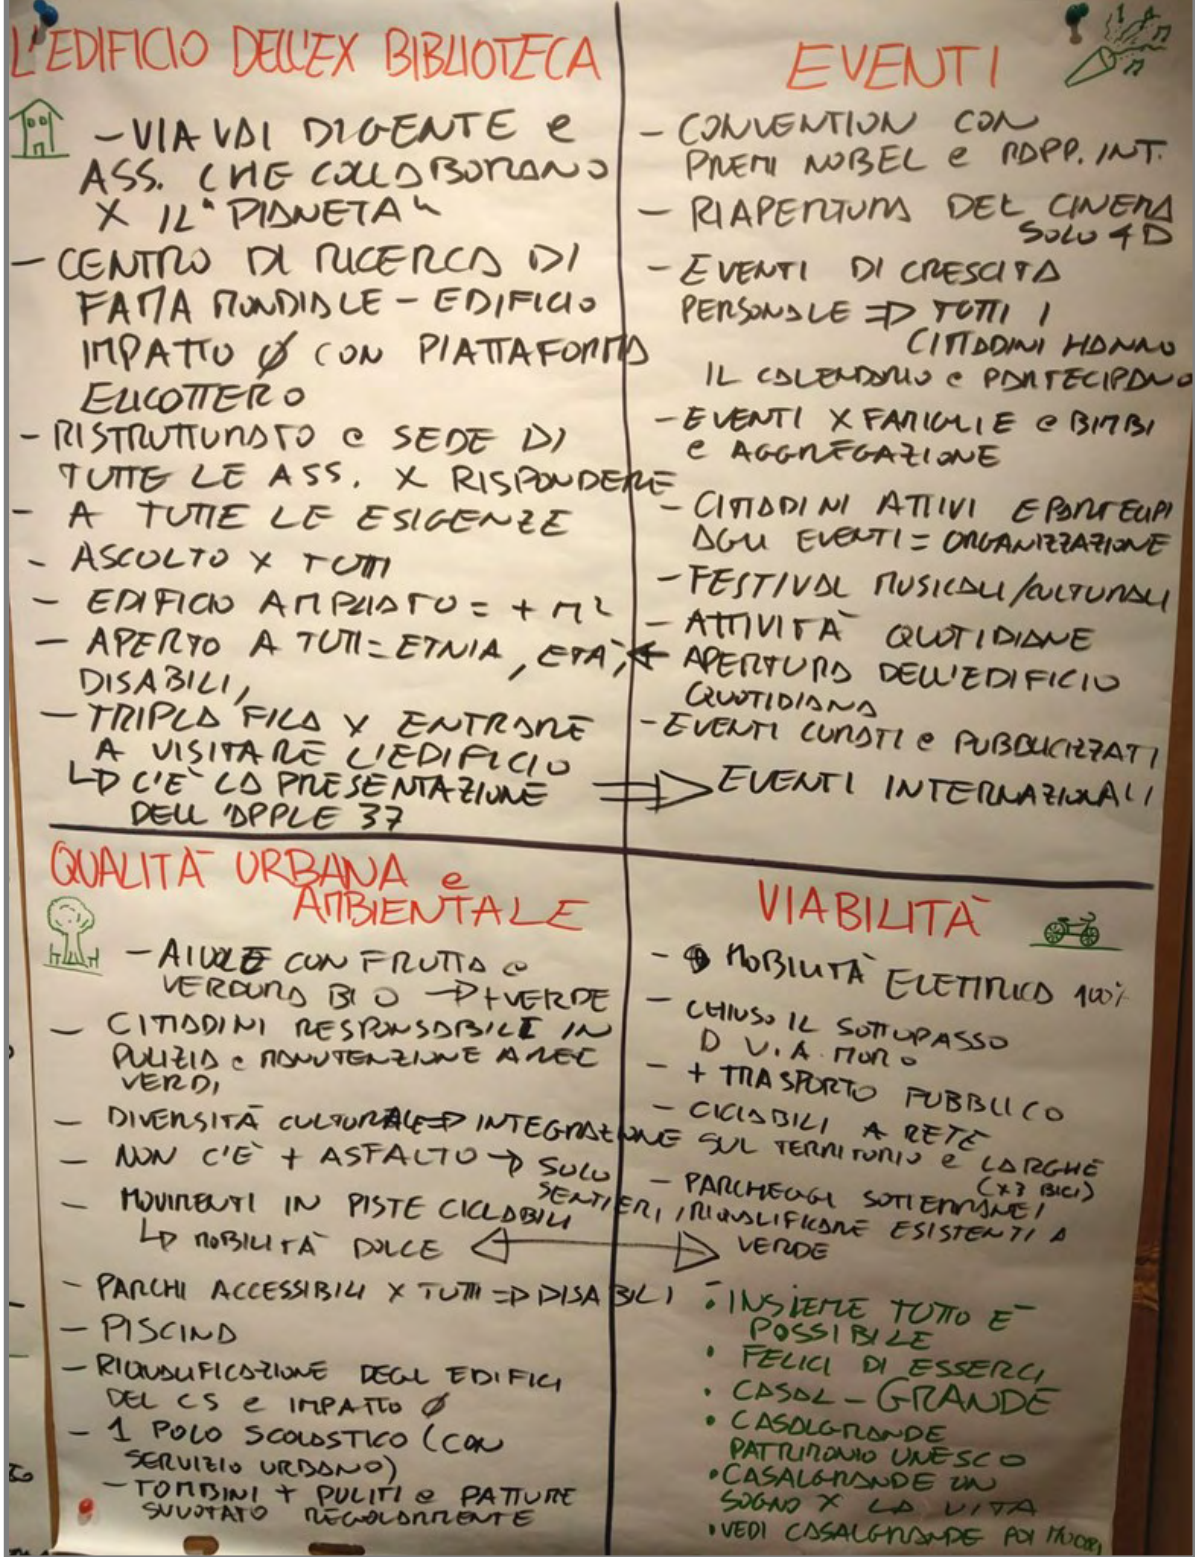 L'EDIFICIO DELL'EX BIBLIOTECA
- VIA VAI DI GENTE e
ASS. CHE COLLABORANO
X IL "PIANETA"
- CENTRO DI RICERCA DI
FAMA MONDIALE - EDIFICIO
IMPATTO Ø CON PIATTAFORMA
ELICOTTERO
- RISTRUTTURATO e SEDE DI
TUTTE LE ASS. X RISPONDERE
- A TUTTE LE ESIGENZE
- ASCOLTO X TUTTI
- EDIFICIO AMPLIATO = + M²
- APERTO A TUTTI = ETNIA, ETA',
DISABILI,
- TRIPLA FILA X ENTRARE
A VISITARE L'EDIFICIO
C'E' LA PRESENTAZIONE
DELL'APPLE 37
EVENTI
- CONVENTION CON
PREMI NOBEL e RAPP. INT.
- RIAPERTURA DEL CINEMA
SOLO 4D
- EVENTI DI CRESCITA
PERSONALE => TUTTI I
CITTADINI HANNO
IL CALENDARIO e PARTECIPANO
- EVENTI X FAMIGLIE e BIMBI
e AGGREGAZIONE
- CITTADINI ATTIVI E PARTECIPI
AGLI EVENTI = ORGANIZZAZIONE
- FESTIVAL MUSICALI/CULTURALI
- ATTIVITA' QUOTIDIANE
← APERTURA DELL'EDIFICIO
QUOTIDIANA
- EVENTI CURATI e PUBBLICIZZATI
=> EVENTI INTERNAZIONALI
QUALITA' URBANA e
AMBIENTALE
- AIUOLE CON FRUTTA e
VERDURA BIO → + VERDE
- CITTADINI RESPONSABILI IN
PULIZIA e MANUTENZIONE AREE
VERDI
- DIVERSITA' CULTURALE => INTEGRAZIONE
- NON C'E' + ASFALTO → SOLO
SENTIERI
- MOVIMENTI IN PISTE CICLABILI
MOBILITA' DOLCE ↔
- PARCHI ACCESSIBILI X TUTTI => DISABILI
- PISCINA
- RIQUALIFICAZIONE DEGL EDIFICI
DEL CS e IMPATTO Ø
- 1 POLO SCOLASTICO (CON
SERVIZIO URBANO)
- TOMBINI + PULITI e PATTUME
SVUOTATO REGOLARMENTE
VIABILITA'
- MOBILITA' ELETTRICA 100%
- CHIUSO IL SOTTOPASSO
D V. A. MORO
- + TRASPORTO PUBBLICO
- CICLABILI A RETE
SUL TERRITORIO e LARGHE
(X3 BICI)
- PARCHEGGI SOTTERRANEI
, RIQUALIFICARE ESISTENTI A
VERDE
• INSIEME TUTTO E'
POSSIBILE
• FELICI DI ESSERCI
• CASAL - GRANDE
• CASALGRANDE
PATTRIMONIO UNESCO
• CASALGRANDE UN
SOGNO X LA VITA
• VEDI CASALGRANDE POI MUORI